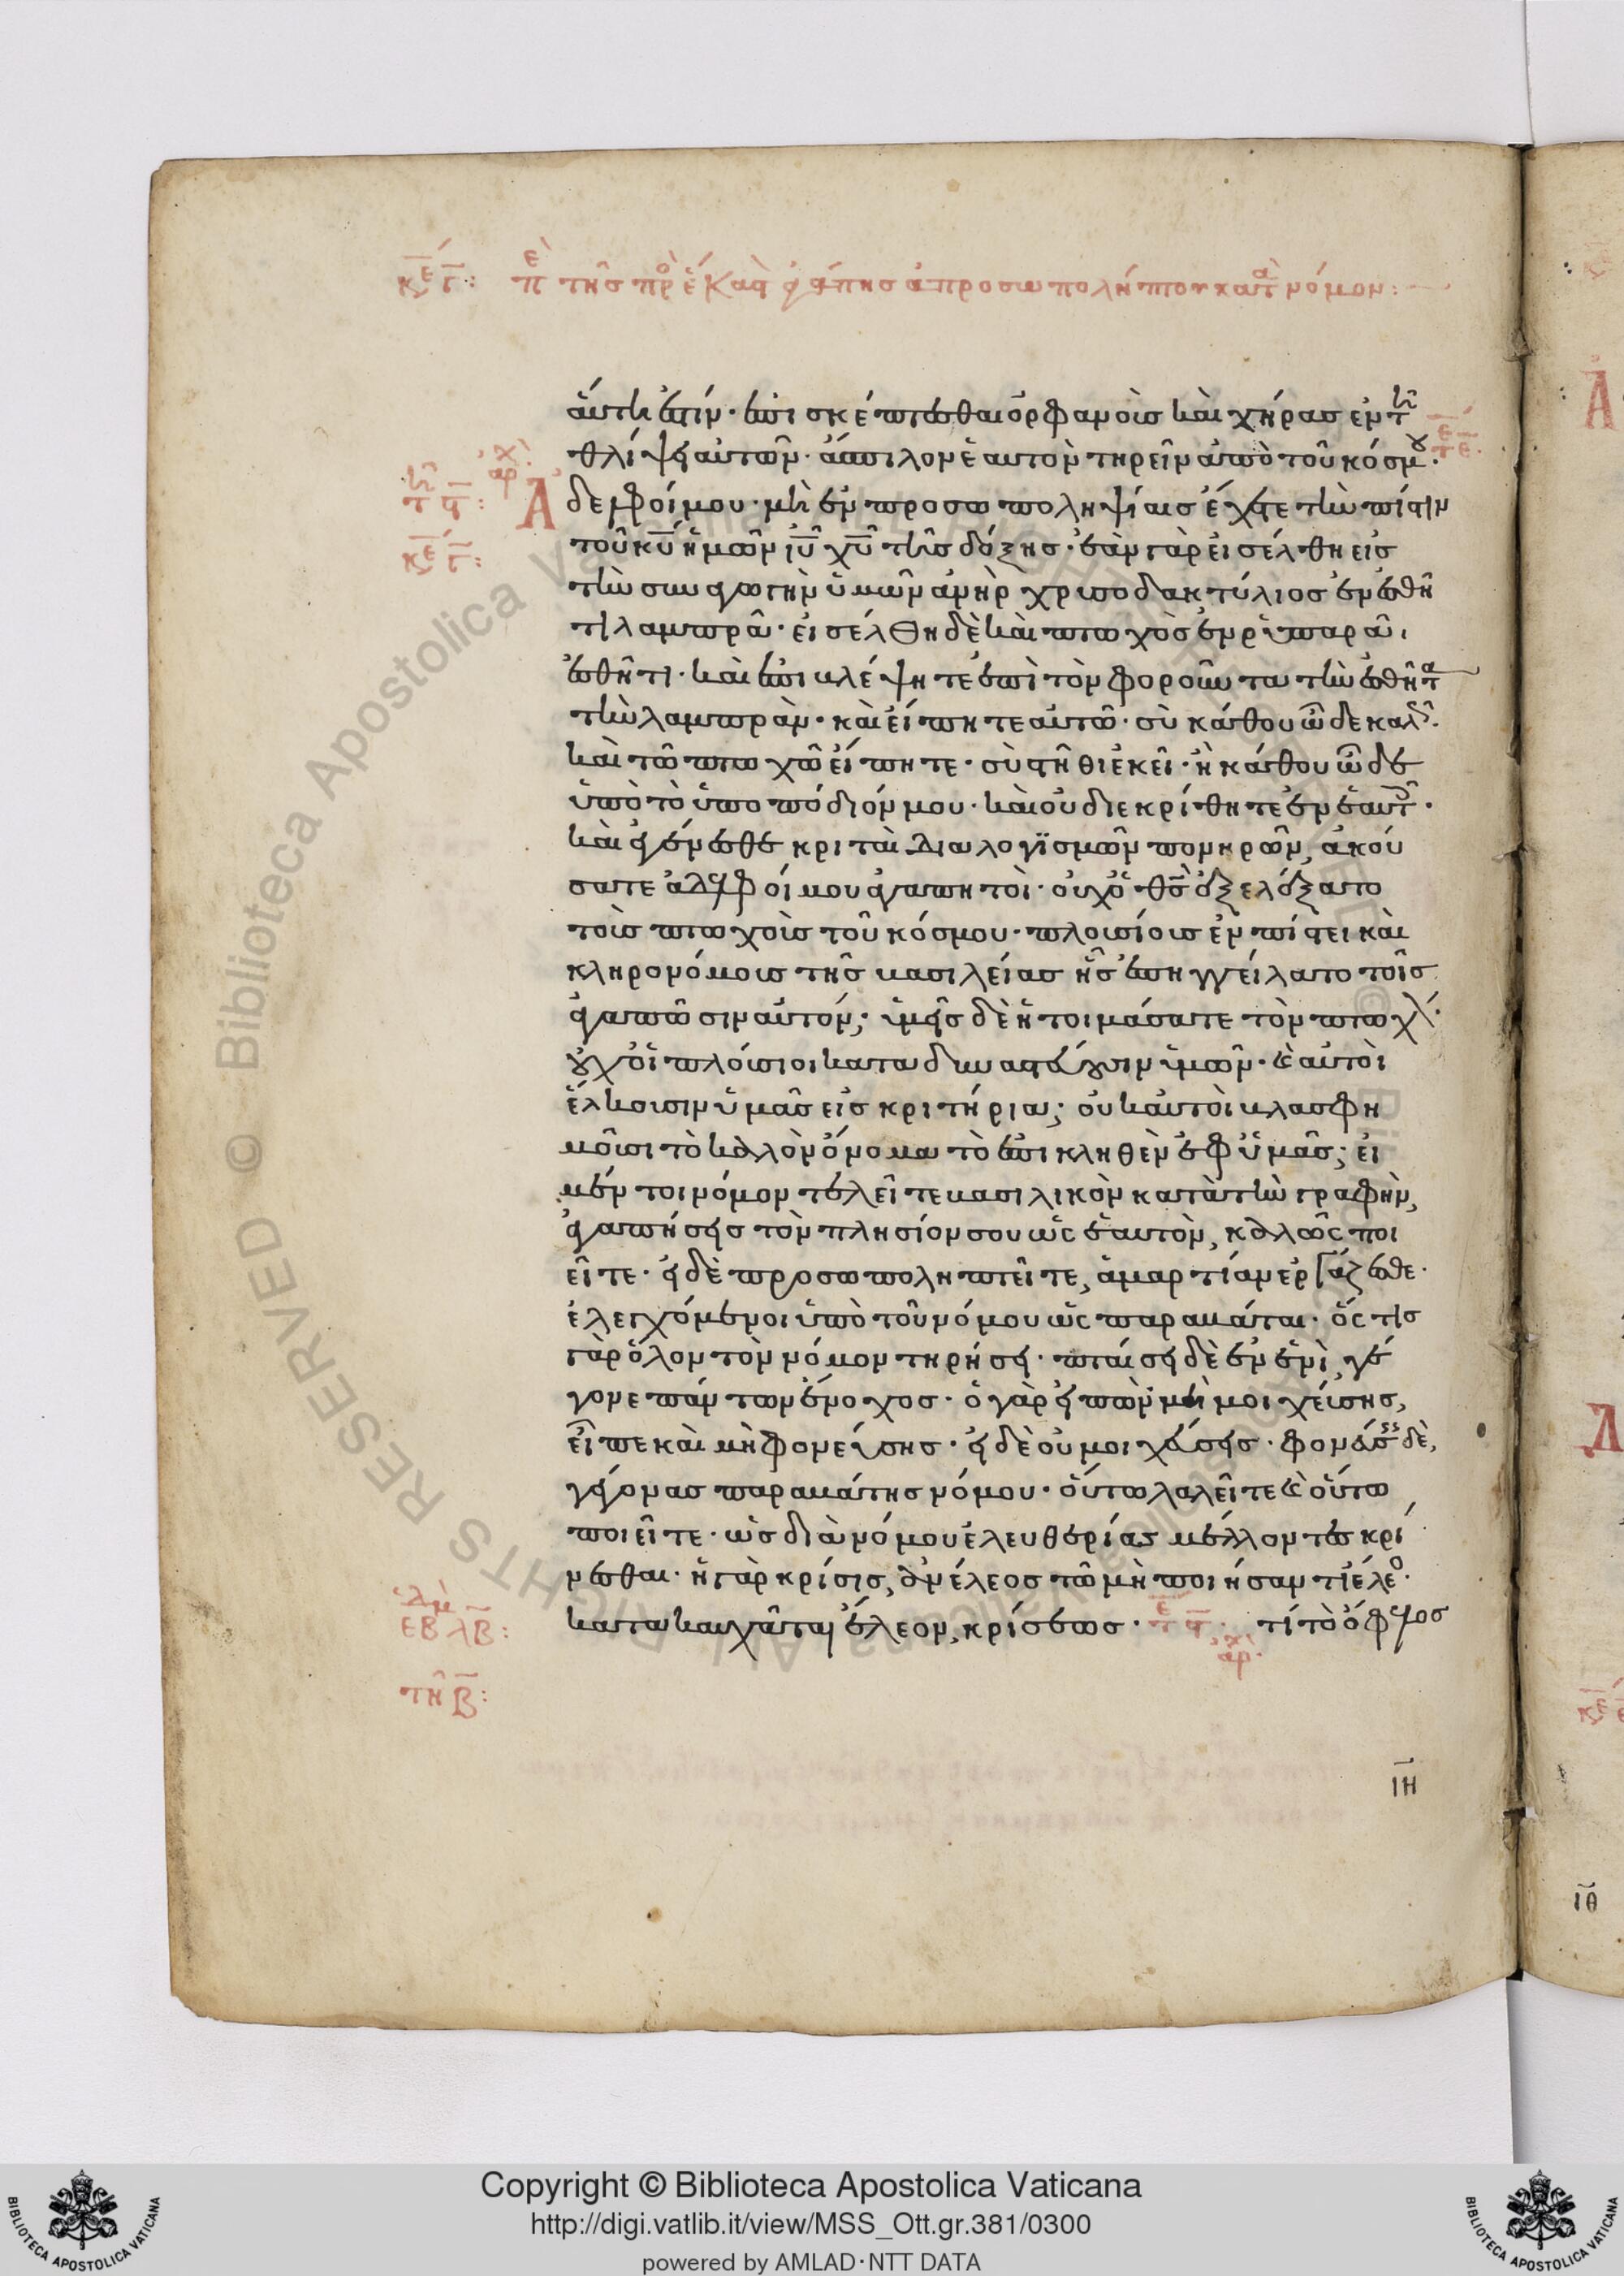 κε γ: περὶ τῆς πρὸς ἕκαστον ἀγάπης ἀπροσωπολήπτου κατὰ νόμον:
αὕτη ἐστίν· ἐπισκέπτεσθαι ὀρφανοὺς καὶ χήρας ἐν τῇ
θλίψει αὐτῶν· ἄσπιλον ἑαυτὸν τηρεῖν ἀπὸ τοῦ κόσμου·
Ἀδελφοί μου· μὴ ἐν προσωποληψίαις ἔχετε τὴν πίστιν
τοῦ κυ ἡμῶν ιυ χυ τῆς δόξης· ἐὰν γὰρ εἰσέλθη εἰς
τὴν συναγωγὴν ὑμῶν ἀνὴρ χρυσοδακτύλιος ἐν ἐσθῆ
τι λαμπρᾶ· εἰσέλθη δὲ καὶ πτωχὸς ἐν ρυπαρᾶ
ἐσθῆτι· καὶ ἐπιβλέψητε ἐπὶ τὸν φοροῦντα τὴν ἐσθῆτα
τὴν λαμπρὰν· καὶ εἴπητε αὐτῶ· σὺ κάθου ὧδε καλῶς·
καὶ τῶ πτωχῶ εἴπητε· σὺ στῆθι ἐκεῖ· ἢ κάθου ὧδε
ὑπὸ τὸ ὑποπόδιόν μου· καὶ οὐ διεκρίθητε ἐν ἑαυτοῖς·
καὶ ἐγένεσθε κριταὶ διαλογϊσμῶν πονηρῶν, ἀκού
σατε ἀδελφοί μου ἀγαπητοὶ· οὐχ ὁ θς ἐξελέξατο
τοὺς πτωχοὺς τοῦ κόσμου· πλουσίους ἐν πίστει καὶ
κληρονόμους τῆς βασιλείας ἧς ἐπηγγείλατο τοῖς
ἀγαπῶσιν αὐτόν; ὑμεῖς δὲ ἠτοιμάσατε τὸν πτωχὸν·
οὐχ οἱ πλούσιοι καταδυναστεύουσιν ὑμῶν· καὶ αὐτοὶ
ἕλκουσιν ὑμᾶς εἰς κριτήρια; οὐκ αὐτοὶ βλασφη
μοῦσι τὸ καλὸν ὄνομα τὸ ἐπικληθὲν ἐφ ὑμᾶς; εἰ
μέν τοι νόμον τελεῖτε βασιλικὸν κατὰ τὴν γραφὴν,
ἀγαπήσεις τὸν πλησίον σου ὡς ἑαυτὸν, καλῶς ποι
εῖτε· εἰ δὲ προσωποληπτεῖτε, ἁμαρτίαν ἐργάζεσθε·
ἐλεγχόμενοι ὑπὸ τοῦ νόμου ὡς παραβάται· ὅστις
γὰρ ὅλον τὸν νόμον τηρήσει· πταίσει δὲ ἐν ἑνὶ, γέ
γονε πάντων ἔνοχος· ὁ γὰρ εἰπὼν μὴ μοιχεύσης,
εἶπε καὶ μὴ φονεύσης· εἰ δὲ οὐ μοιχεύσεις· φονεύσεις δὲ,
γέγονας παραβάτης νόμου· οὕτω λαλεῖτε καὶ οὕτω
ποιεῖτε· ὡς διὰ νόμου ἐλευθερίας μέλλοντες κρί
νεσθαι· ἡ γὰρ κρίσις, ἀνέλεος τῶ μὴ ποιήσαντι ἔλεος·
κατακαυχᾶται ἔλεον, κρίσεως· τί τὸ ὄφελος
τῇ β:
ιη
ιθ
Copyright © Biblioteca Apostolica Vaticana
http://digi.vatlib.it/view/MSS_Ott.gr.381/0300
powered by AMLAD·NTT DATA